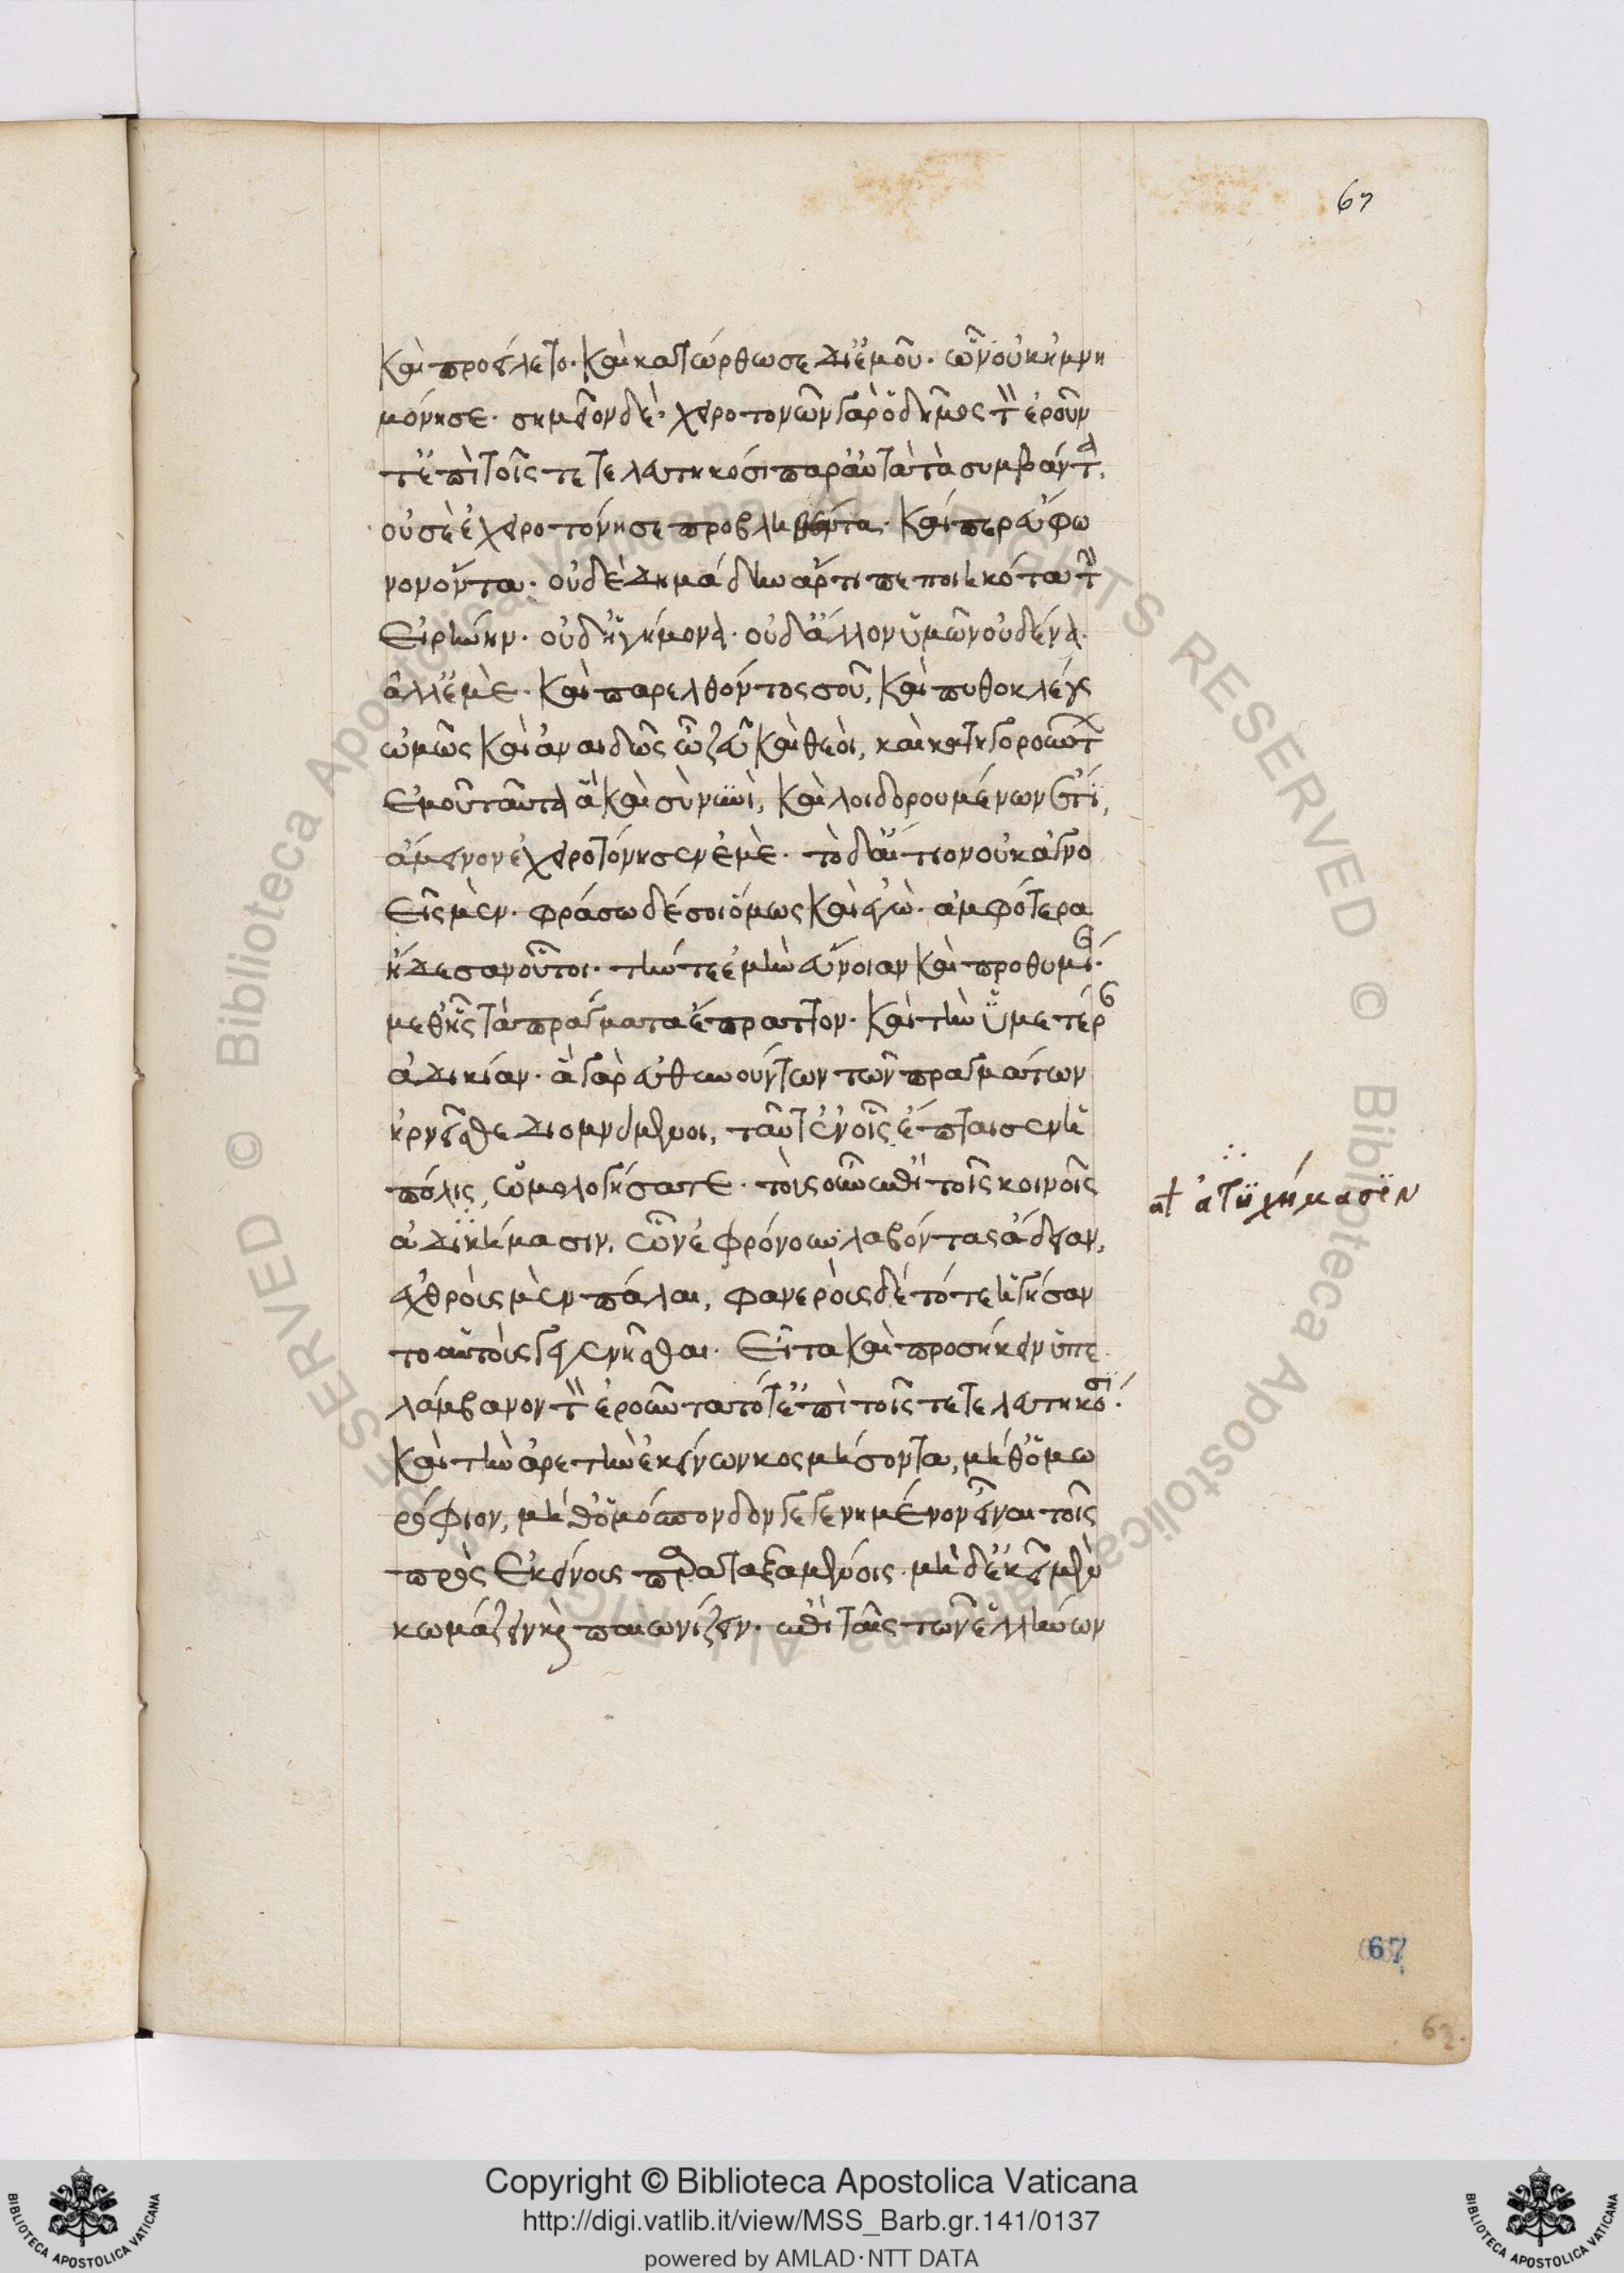 67
καὶ προείλετο· καὶ κατώρθωσε δι' ἐμοῦ· ὧν οὐκ ἠμνη
μόνησε· σημεῖον δέ· χειροτονῶν γὰρ ὁ δῆμος τὸν ἐροῦν
τ' ἐπὶ τοῖς τετελευτηκόσι παρ' αὐτὰ τὰ συμβάντα,
οὐ σὲ ἐχειροτόνησε προβληθέντα· καίπερ εὔφω
νον ὄντα· οὐδὲ δημάδην ἄρτι πεποιηκότα τὴν
εἰρήνην· οὐδ' ἡγήμονα· οὐδ' ἄλλον ὑμῶν οὐδένα·
ἀλλ' ἐμὲ· καὶ παρελθόντος σοῦ, καὶ πυθοκλέους
ὠμῶς καὶ ἀναιδῶς ὦ ζεῦ καὶ θεοὶ, καὶ κατηγορούντων
ἐμοῦ ταῦτα ἃ καὶ σὺ νυνὶ, καὶ λοιδορουμένων ἔτι,
ἄμεινον ἐχειροτόνησεν ἐμὲ· τὸ δ' αἴτιον οὐκ ἀγνο
εῖς μὲν· φράσω δέ σοι ὅμως καὶ ἐγὼ· ἀμφότερα
ᾔδεσαν οὗτοι· τήν τε ἐμὴν εὔνοιαν καὶ προθυμίαν·
μεθ' ἧς τὰ πράγματα ἔπραττον· καὶ τὴν ὑμετέραν
ἀδικίαν· ἃ γὰρ εὐθηνούντων τῶν πραγμάτων
ἠρνεῖσθε διομνύμενοι, ταῦτ' ἐν οἷς ἔπταισεν ἡ
πόλις, ὡμολογήσατε· τοὺς οὖν ἐπὶ τοῖς κοινοῖς
ἀδικήμασιν, ὧν ἐφρόνουν λαβόντας ἄδειαν,
ἐχθροὺς μὲν πάλαι, φανεροὺς δὲ τότε ἡγήσαν
το αὐτοῖς γεγενῆσθαι· εἶτα καὶ προσήκειν ὑπε
λάμβανον τὸν ἐροῦντα τότ' ἐπὶ τοῖς τετελευτηκόσι·
καὶ τὴν ἀρετὴν ἐκείνων κοσμήσοντα, μήθ' ὁμω
ρόφιον, μήθ' ὁμόσπονδον γεγενημένον εἶναι τοῖς
πρὸς ἐκείνους παραταξαμένοις· μὴ δ' ἐκεῖ μὲν
κωμάζειν καὶ παιωνίζειν· ἐπὶ ταῖς τῶν ἑλλήνων
ἀτυχήμασιν
67
Copyright © Biblioteca Apostolica Vaticana
http://digi.vatlib.it/view/MSS_Barb.gr.141/0137
powered by AMLAD·NTT DATA